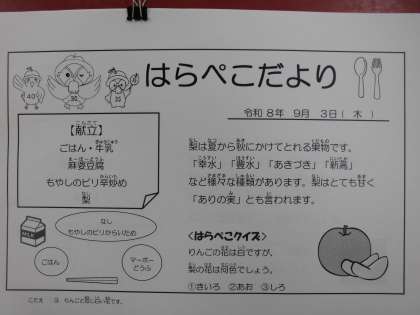 はらぺこだより
令和8年 9月 3日(木)
【献立】
ごはん・牛乳
麻婆豆腐
もやしのピリ辛炒め
梨
なし
もやしのピリからいため
ごはん
マーボー
どうふ
梨は夏から秋にかけてとれる果物です。
「幸水」「豊水」「あきづき」「新高」
など様々な種類があります。梨はとても甘く
「ありの実」とも言われます。
<はらぺこクイズ>
りんごの花は白ですが、
梨の花は何色でしょう。
①きいろ ②あお ③しろ
こたえ ③ りんごと同じ白い花です。